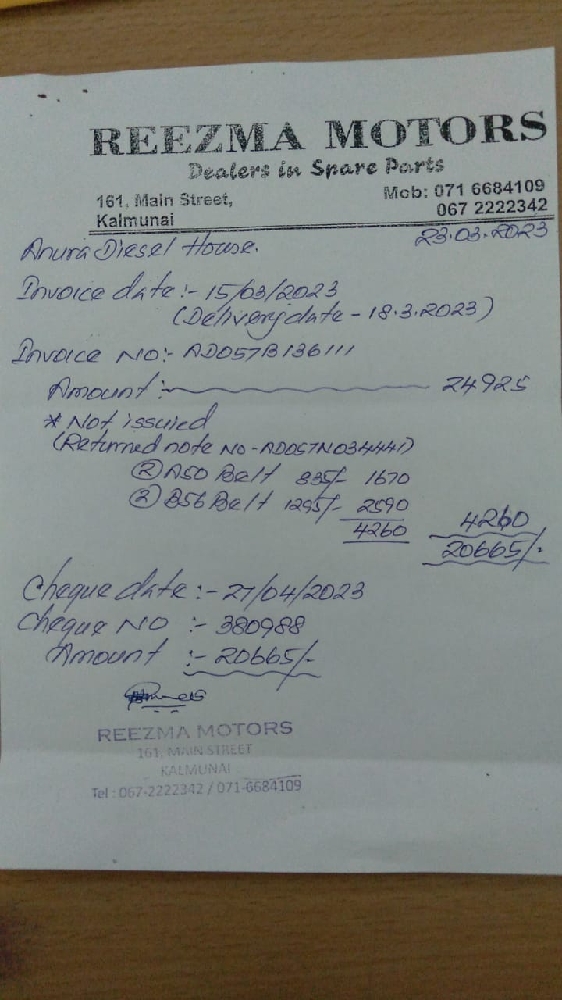 REEZMA MOTORS
Dealers in Spare Parts
161, Main Street,
Kalmunai
Mob: 071 6684109
067 2222342
23.03.2023
Anura Diesel House.
Invoice date :- 15/03/2023
(Delivery date - 18.3.2023)
Invoice NO :- AD057B136111
Amount : 24925
* Not issuied
(Returned note NO - AD057N034441)
② A50 Belt 835/- 1670
② B56 Belt 1295/- 2590
4260 4260
20665/-
Cheque date :- 27/04/2023
Cheque NO :- 380988
Amount :- 20665/-
REEZMA MOTORS
161, MAIN STREET
KALMUNAI
Tel : 067-2222342 / 071-6684109